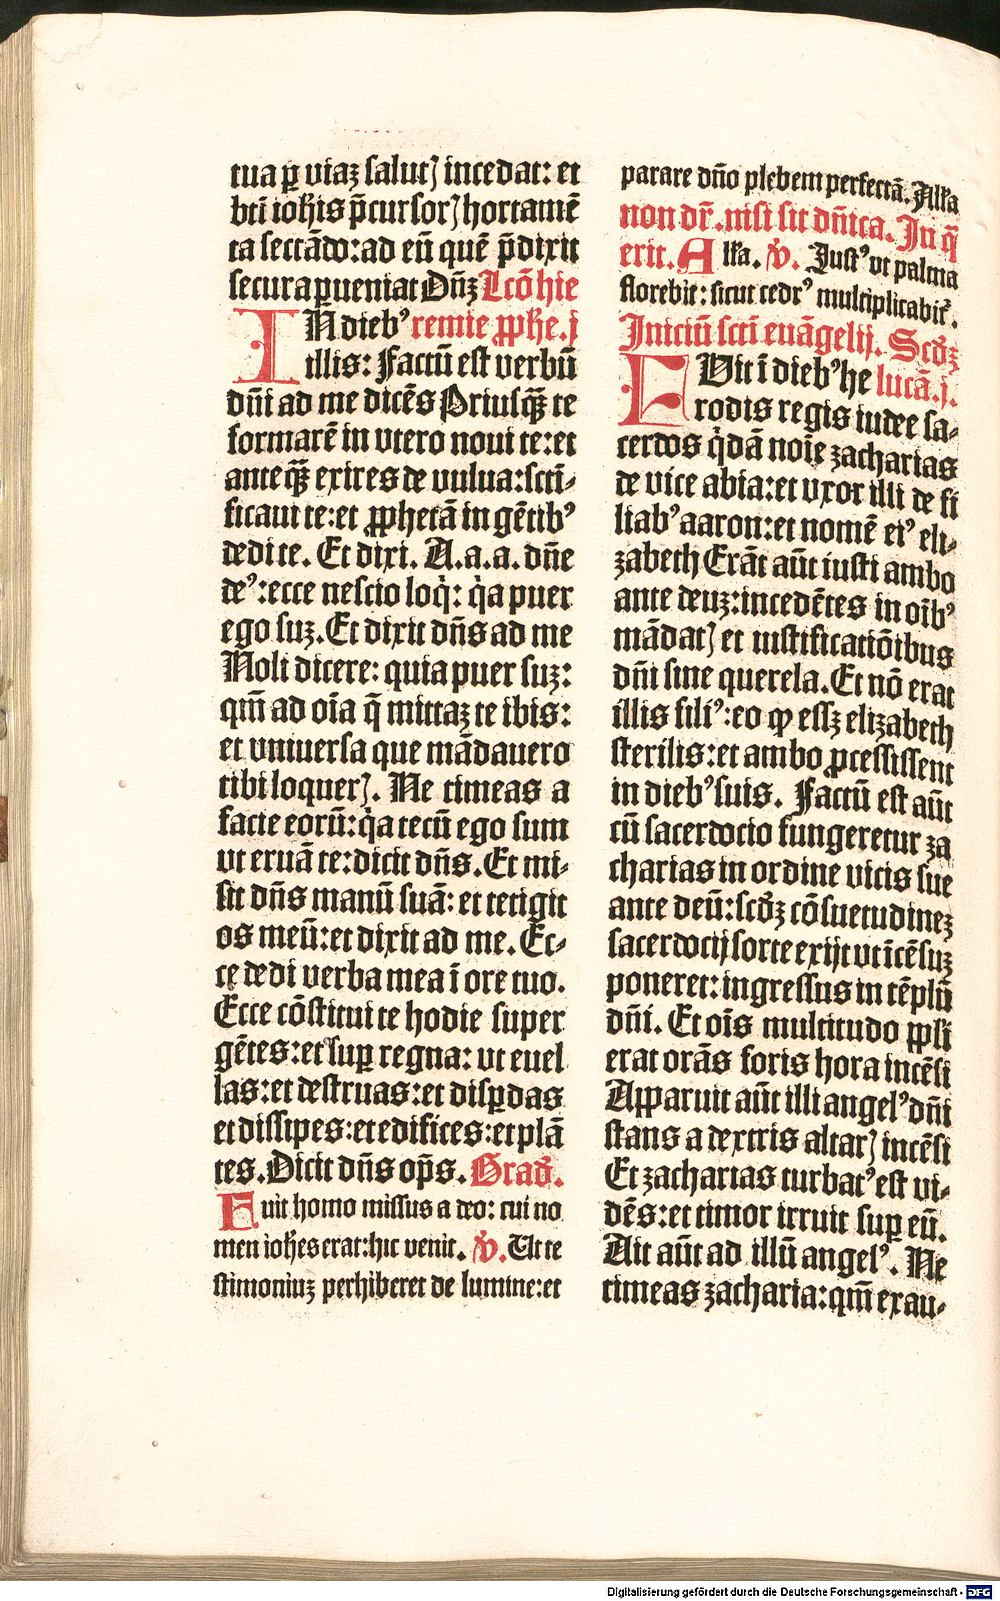 tua ꝑ viaꝫ salutꝭ incedat: et
bti̅ ioh̅is p̅cursorꝭ hortame̅
ta secta̅do: ad eu̅ que̅ p̅dixit
secura ꝑueniat Dn̅ꝫ Lc̅o hie
IN diebꝰ remie ꝓph̅e. j
illis: Factu̅ est verbu̅
dn̅i ad me dice̅s Priusqꝫ̅ te
formare̅ in vtero noui te: et
anteqꝫ̅ exires de vulua: sc̅ti⸗
ficaui te: et ꝓpheta̅ in ge̅tibꝰ
dedi te. Et dixi. A. a. a. dn̅e
deꝰ: ecce nescio loq̇: q̇a puer
ego suꝫ. Et dixit dn̅s ad me
Noli dicere: quia puer suꝫ:
qm̅ ad oi̅a q̅ mittaꝫ te ibis:
et vniuersa que ma̅dauero
tibi loquerꝭ. Ne timeas a
facie eoru̅: q̇a tecu̅ ego sum
vt erua̅ te: dicit dn̅s. Et mi⸗
sit dn̅s manu̅ sua̅: et tetigit
os meu̅: et dixit ad me. Ec⸗
ce dedi verba mea i̅ ore tuo.
Ecce co̅stitui te hodie super
ge̅tes: et suꝑ regna: vt euel
las: et destruas: et disꝑdas
et dissipes: et edifices: et pla̅
tes. Dicit dn̅s op̅s. Grad̅.
Fuit homo missus a deo: cui no
men ioh̅es erat: hic venit. ꝟ. Ut te
stimoniuꝫ perhiberet de lumine: et
parare dn̅o plebem perfecta̅. Alla̅
non dr̅. nisi sit dn̅ica. In q̅
erit. Alla̅. ꝟ. Justꝰ vt palma
florebit: sicut cedrꝰ multiplicabit̅.
Iniciu̅ sc̅ti eua̅gelij. Scd̅ꝫ
FUit i̅ diebꝰ he luca̅. j.
rodis regis iudee sa⸗
cerdos q̇da̅ noi̅e zacharias
de vice abia: et vxor illi de fi
liabꝰ aaron: et nome̅ eiꝰ eli⸗
zabeth Era̅t au̅t iusti ambo
ante deuꝫ: incede̅tes in oi̅bꝰ
ma̅datꝭ et iustificatio̅ibus
dn̅i sine querela. Et no̅ erat
illis filiꝰ: eo ꝙ essꝫ elizabeth
sterilis: et ambo ꝓcessissent
in diebꝰ suis. Factu̅ est au̅t
cu̅ sacerdocio fungeretur za
charias in ordine vicis sue
ante deu̅: scd̅ꝫ co̅suetudineꝫ
sacerdocij sorte exijt vt ice̅suꝫ
poneret: ingressus in te̅plu̅
dn̅i. Et oi̅s multitudo ꝓpl̅i
erat ora̅s foris hora ince̅si
Apparuit au̅t illi angelꝰ dn̅i
stans a dextris altarꝭ ince̅si
Et zacharias turbatꝰ est vi⸗
de̅s: et timor irruit suꝑ eu̅.
Ait au̅t ad illu̅ angelꝰ. Ne
timeas zacharia: qm̅ exau⸗
Digitalisierung gefördert durch die Deutsche Forschungsgemeinschaft - DFG